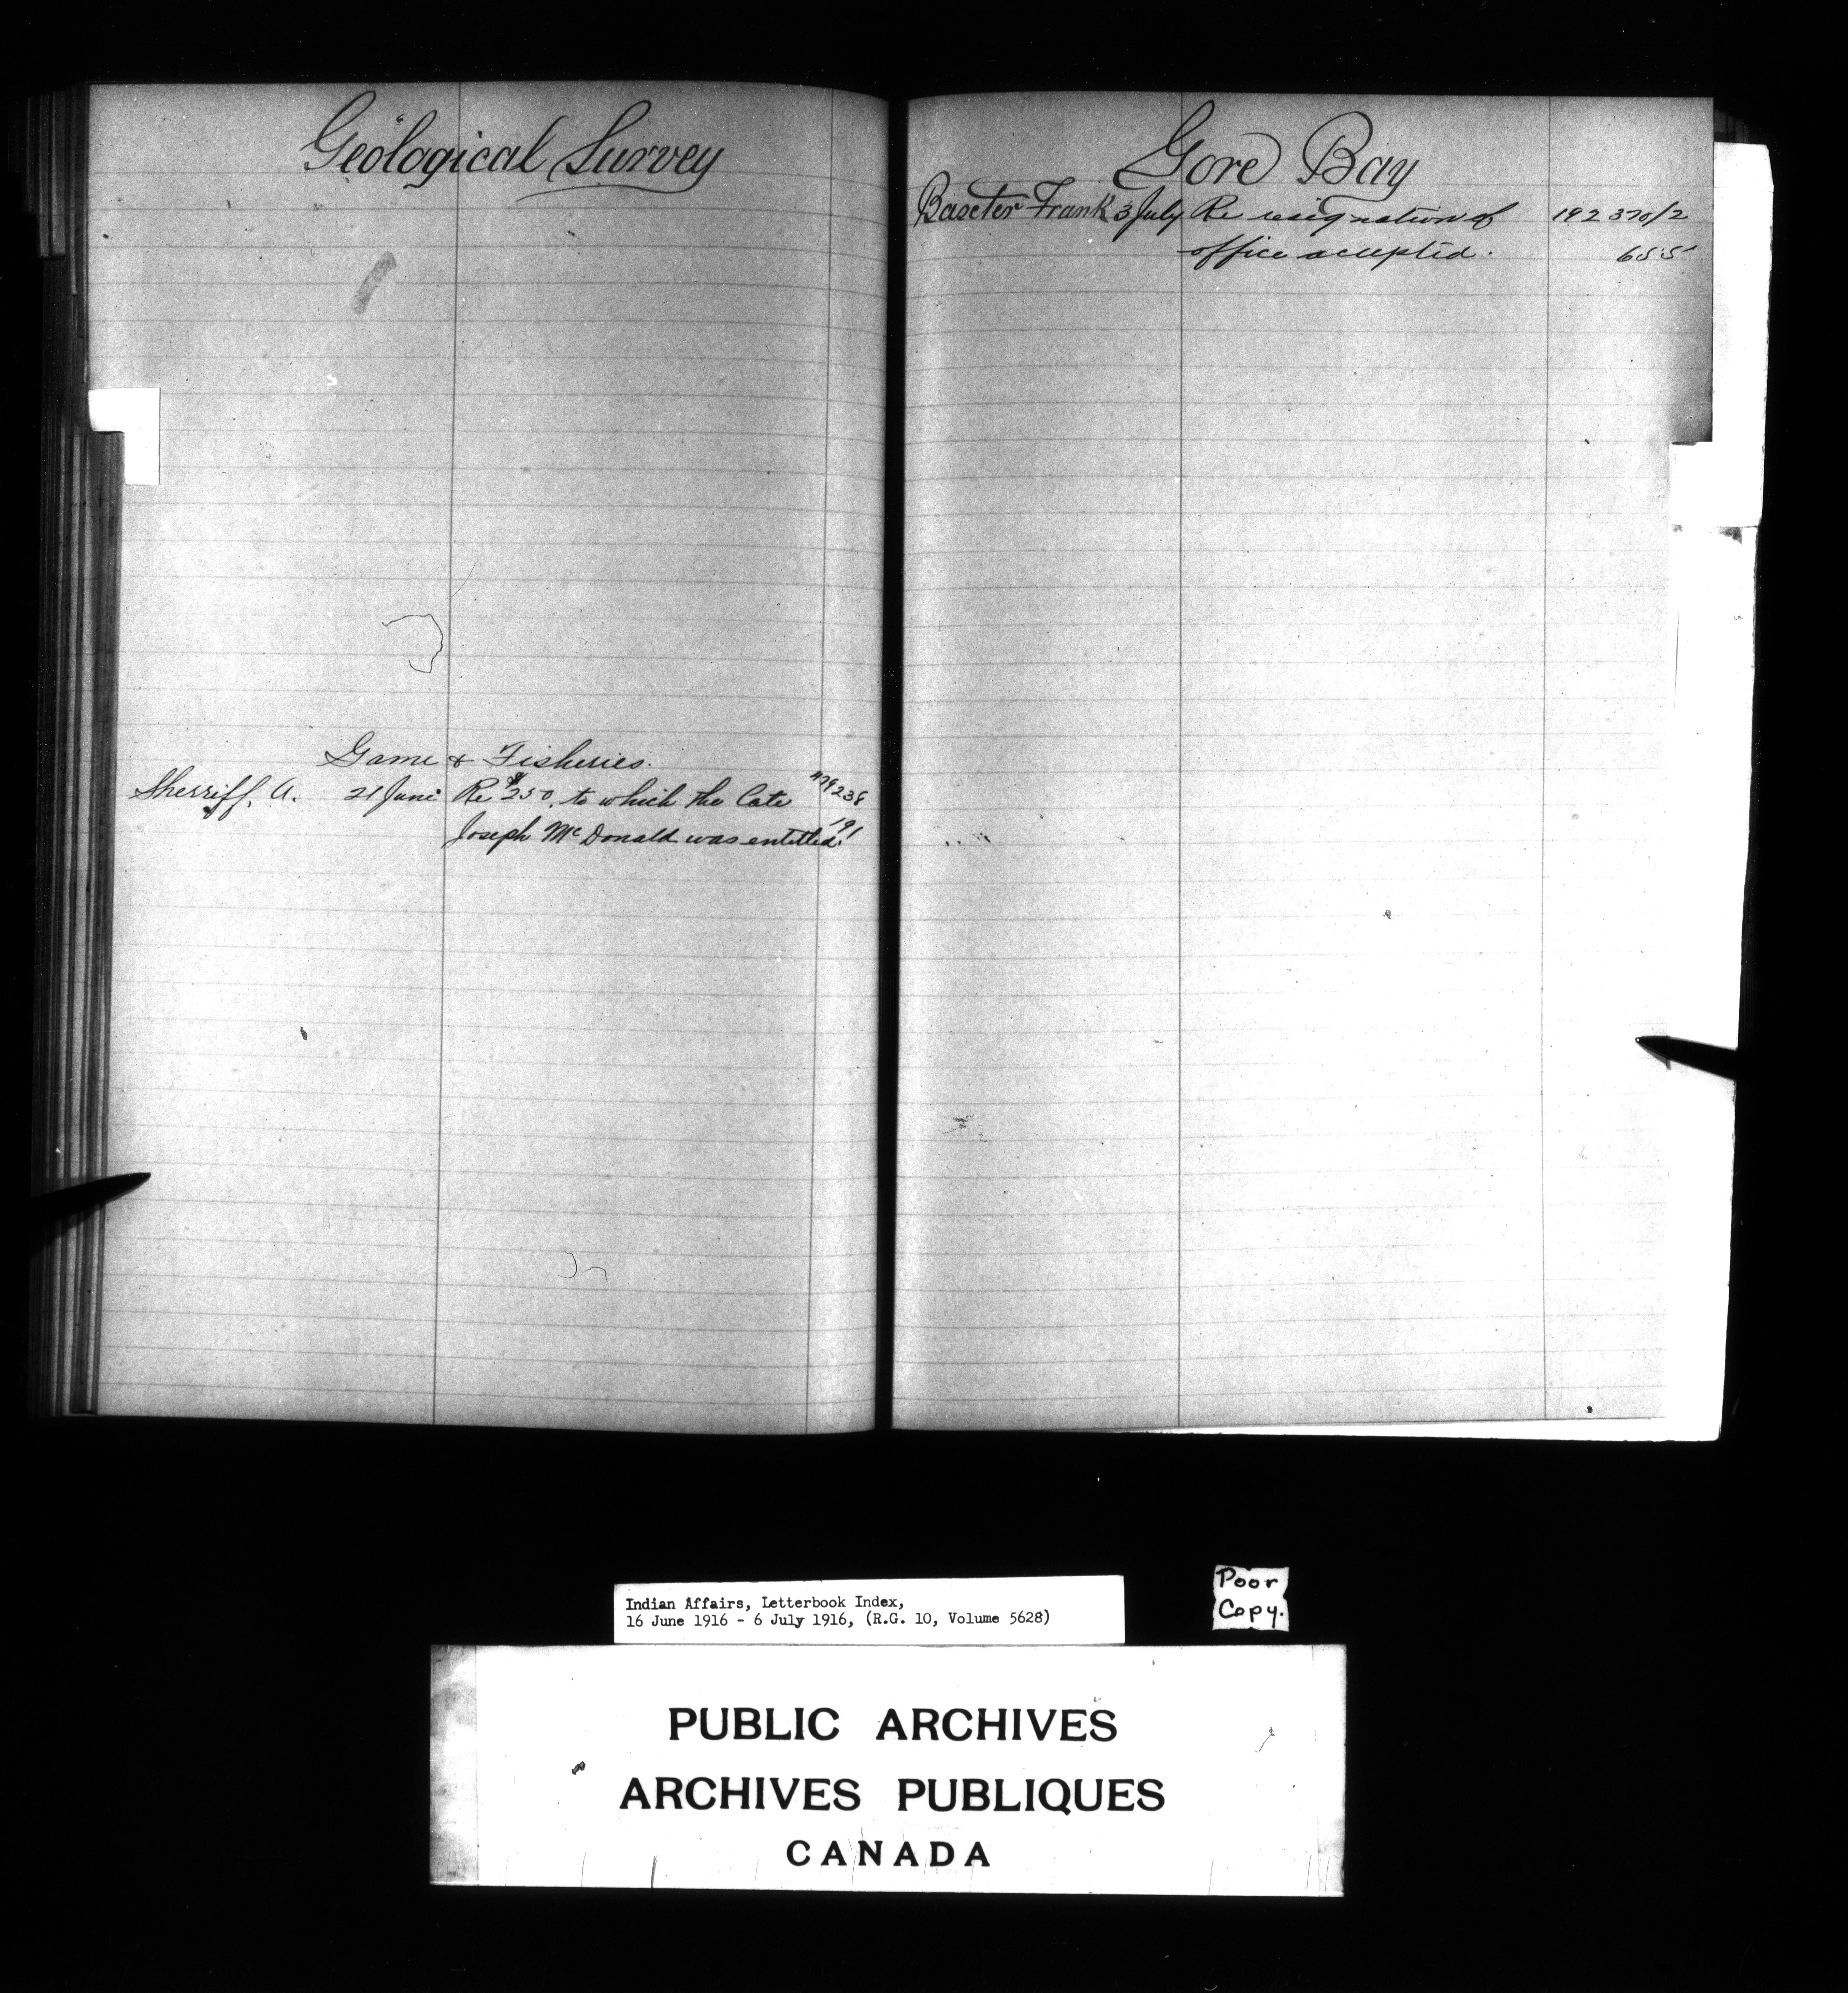 Geological Survey
Game & Fisheries.
Sherriff, A. 21 June Re $250. to which the late 479238
Joseph McDonald was entitled. 191
Gore Bay
Baxter Frank 3 July Re resignation of 192370/2
office accepted. 655
Indian Affairs, Letterbook Index,
16 June 1916 - 6 July 1916, (R.G. 10, Volume 5628)
Poor
Copy.
PUBLIC ARCHIVES
ARCHIVES PUBLIQUES
CANADA